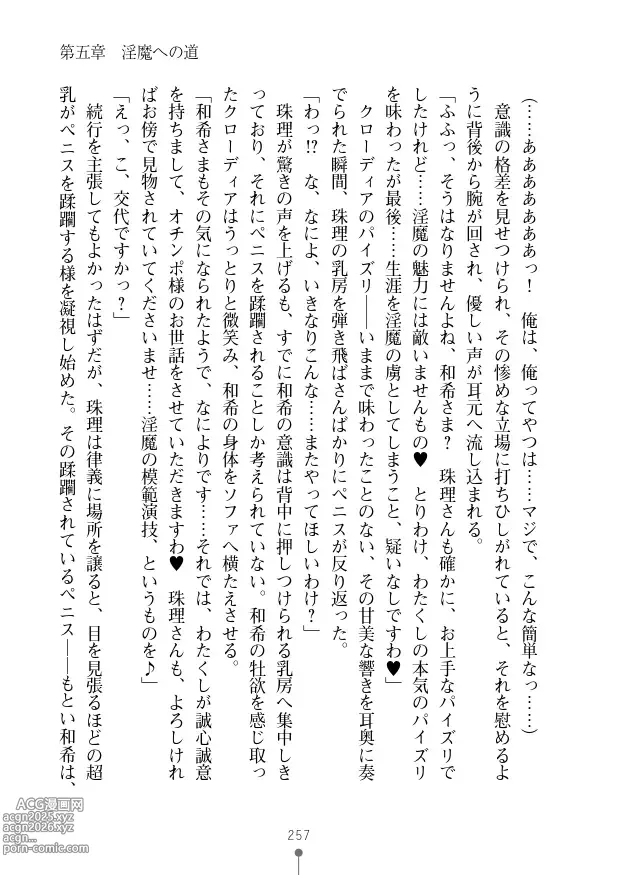 第五章　淫魔への道
（……あああああああっ！　俺は、俺ってやつは……マジで、こんな簡単なっ……）
　意識の格差を見せつけられ、その惨めな立場に打ちひしがれていると、それを慰めるよ
うに背後から腕が回され、優しい声が耳元へ流し込まれる。
「ふふっ、そうはなりませんよね、和希さま？　珠理さんも確かに、お上手なパイズリで
したけれど……淫魔の魅力には敵いませんもの♥　とりわけ、わたくしの本気のパイズリ
を味わったが最後……生涯を淫魔の虜としてしまうこと、疑いなしですわ♥」
　クローディアのパイズリ――いままで味わったことのない、その甘美な響きを耳奥に奏
でられた瞬間、珠理の乳房を弾き飛ばさんばかりにペニスが反り返った。
「わっ!?　な、なによ、いきなりこんな……またやってほしいわけ？」
　珠理が驚きの声を上げるも、すでに和希の意識は背中に押しつけられる乳房へ集中しき
っており、それにペニスを蹂躙されることしか考えられていない。和希の牡欲を感じ取っ
たクローディアはうっとりと微笑み、和希の身体をソファへ横たえさせる。
「和希さまもその気になられたようで、なによりです……それでは、わたくしが誠心誠意
を持ちまして、オチンポ様のお世話をさせていただきますわ♥　珠理さんも、よろしけれ
ばお傍で見物されていてくださいませ……淫魔の模範演技、というものを♪」
「えっ、こ、交代ですかっ？」
　続行を主張してもよかったはずだが、珠理は律義に場所を譲ると、目を見張るほどの超
乳がペニスを蹂躙する様を凝視し始めた。その蹂躙されているペニス――もとい和希は、
257
ACG漫画网
acgn2025.xyz
acgn2026.xyz
acgn...
porn-comic.com